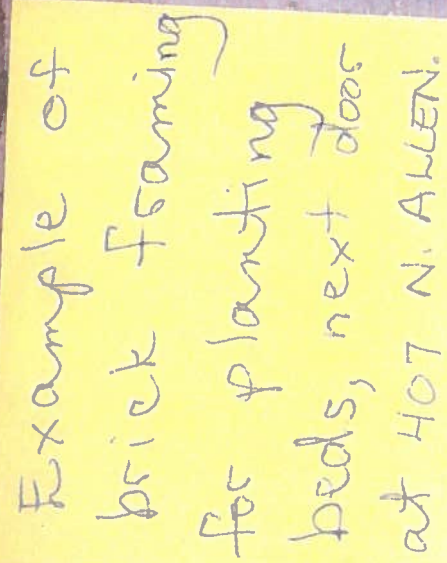 Example of
brick framing
for planting
beds, next door
at 407 N. ALLEN.